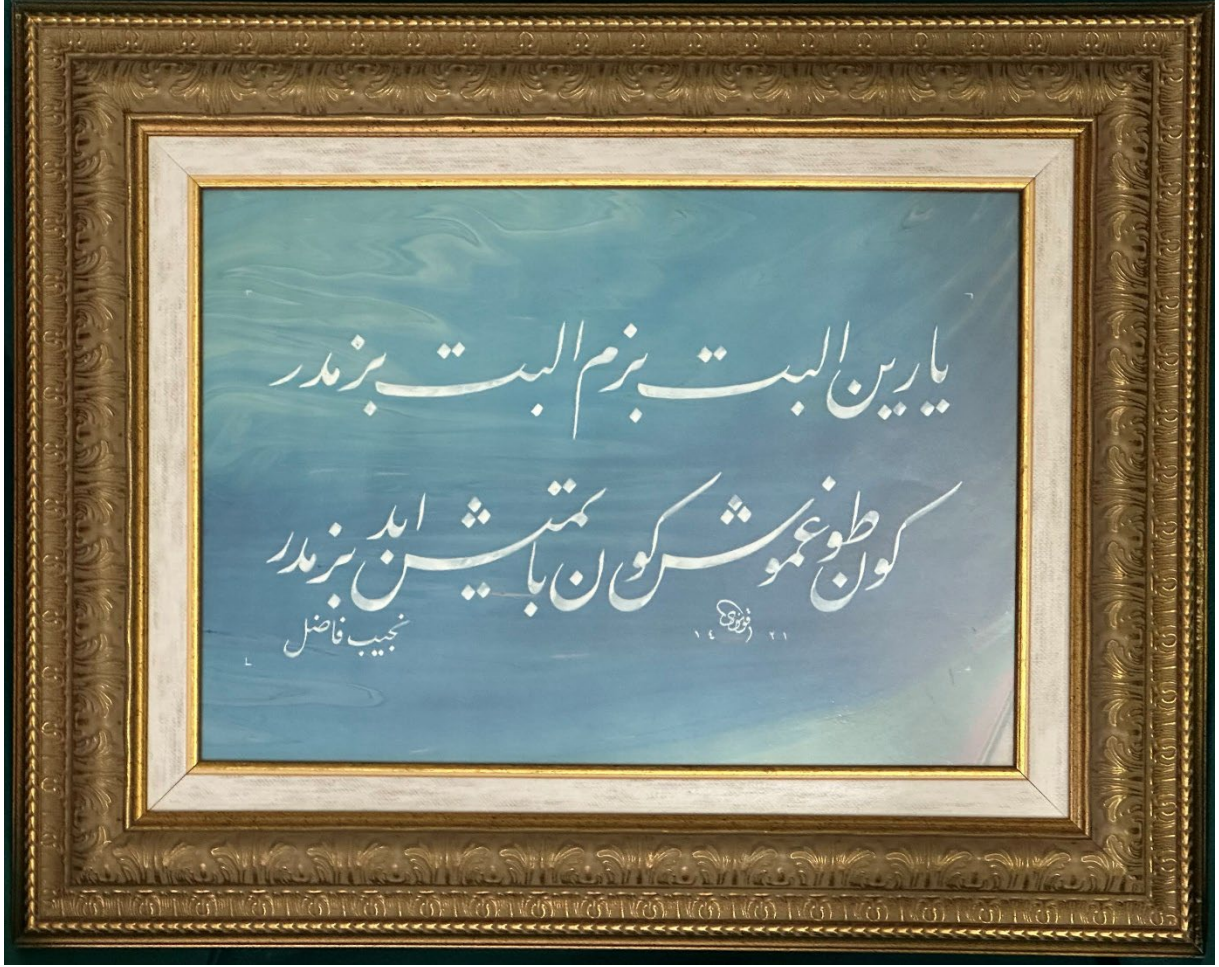 يارين البت بزم البت بزمدر
كون طوغموش كون باتمش ابد بزمدر
نجيب فاضل
١٤٢١